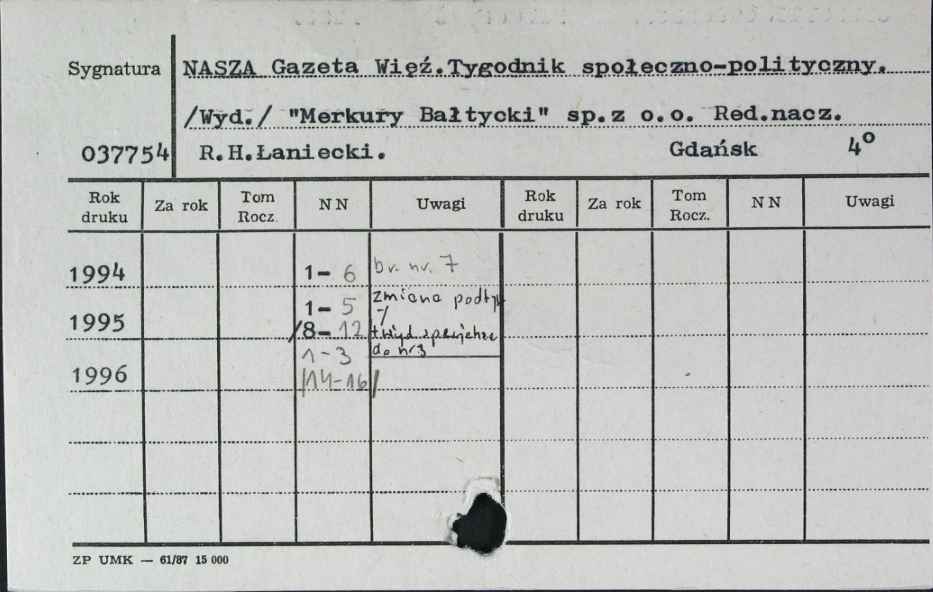 Sygnatura
NASZA Gazeta Więź.Tygodnik społeczno-polityczny.
/Wyd./ "Merkury Bałtycki" sp.z o.o. Red.nacz.
037754 R.H.Łaniecki. Gdańsk 4°
Rok druku Za rok Tom Rocz. NN Uwagi Rok druku Za rok Tom Rocz. NN Uwagi
1994 1-6 br. nr. 7
1-5 zmiana podtyt
1995 /8-12/
do nr 3
1-3
1996 /14-16/
ZP UMK — 61/87 15 000